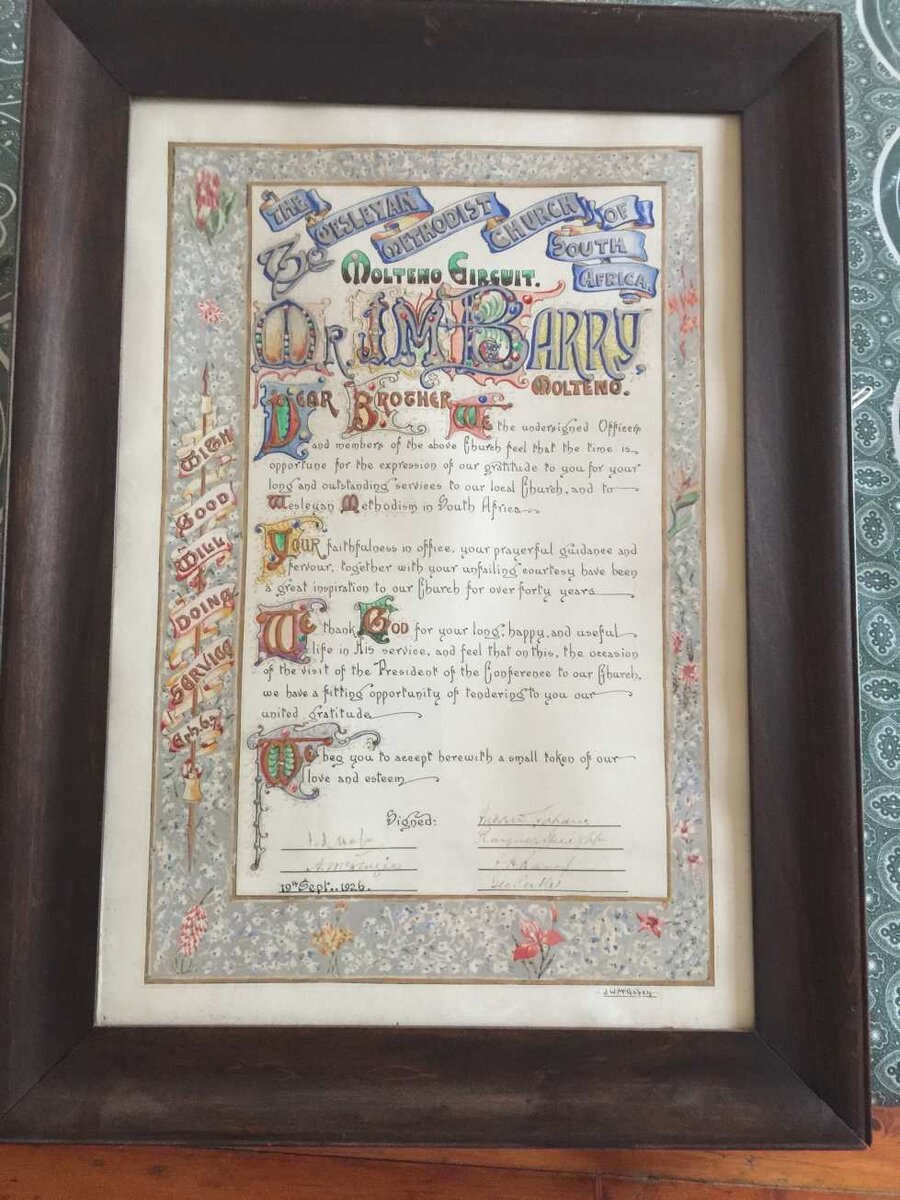 THE WESLEYAN METHODIST CHURCH OF SOUTH AFRICA.
To
MOLTENO CIRCUIT.
MR. J M BARRY,
MOLTENO.
DEAR BROTHER We the undersigned Officers
and members of the above Church feel that the time is
opportune for the expression of our gratitude to you for your
long and outstanding services to our local Church, and to
Wesleyan Methodism in South Africa.
YOUR faithfulness in office, your prayerful guidance and
fervour, together with your unfailing courtesy have been
a great inspiration to our Church for over forty years.
We thank GOD for your long, happy, and useful
life in His service, and feel that on this, the occasion
of the visit of the President of the Conference to our Church,
we have a fitting opportunity of tendering to you our
united gratitude
We beg you to accept herewith a small token of our
love and esteem
Signed:
19th Sept., 1926.
WITH
GOOD
WILL
DOING
SERVICE
Eph. 6.7